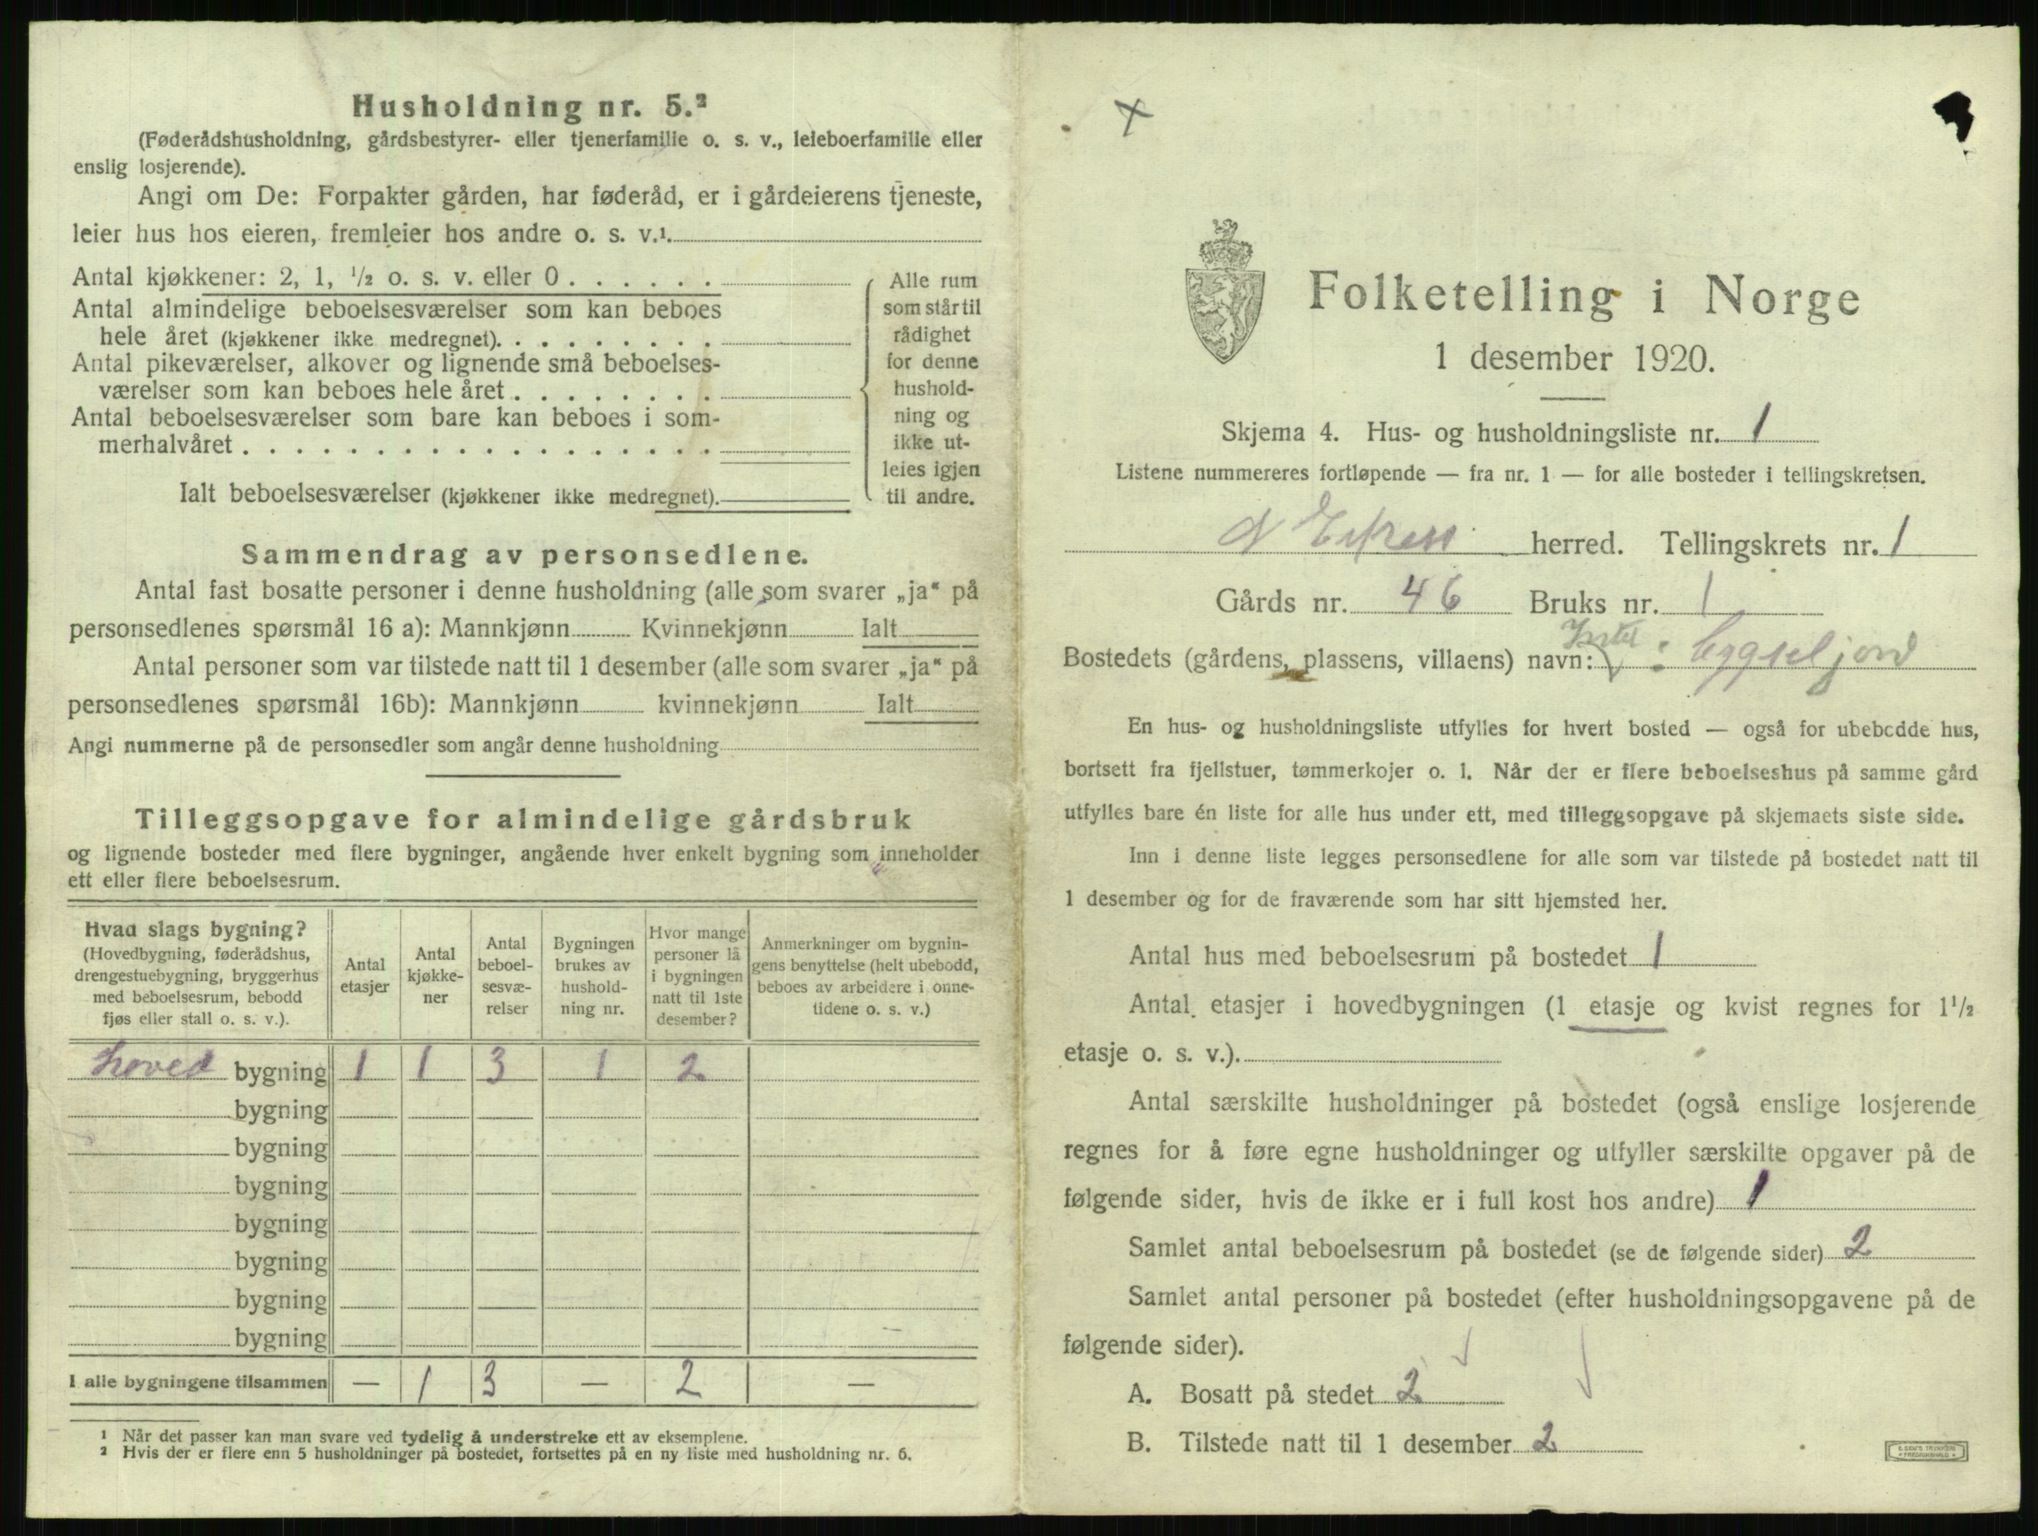 Husholdning nr. 5.²
(Føderådshusholdning, gårdsbestyrer- eller tjenerfamilie o. s. v., leieboerfamilie eller
enslig losjerende).
Angi om De: Forpakter gården, har føderåd, er i gårdeierens tjeneste,
leier hus hos eieren, fremleier hos andre o. s. v.¹
Antal kjøkkener: 2, 1, ½ o. s. v. eller 0
Antal almindelige beboelsesværelser som kan beboes
hele året (kjøkkener ikke medregnet).
Antal pikeværelser, alkover og lignende små beboelses-
værelser som kan beboes hele året
Antal beboelsesværelser som bare kan beboes i som-
merhalvåret
Ialt beboelsesværelser (kjøkkener ikke medregnet).
Alle rum
som står til
rådighet
for denne
hushold-
ning og
ikke ut-
leies igjen
til andre.
Sammendrag av personsedlene.
Antal fast bosatte personer i denne husholdning (alle som svarer „ja“ på
personsedlenes spørsmål 16 a): Mannkjønn Kvinnekjønn Ialt
Antal personer som var tilstede natt til 1 desember (alle som svarer „ja“ på
personsedlenes spørsmål 16b): Mannkjønn kvinnekjønn Ialt
Angi nummerne på de personsedler som angår denne husholdning
Tilleggsopgave for almindelige gårdsbruk
og lignende bosteder med flere bygninger, angående hver enkelt bygning som inneholder
ett eller flere beboelsesrum.
Hvad slags bygning?
(Hovedbygning, føderådshus,
drengestuebygning, bryggerhus
med beboelsesrum, bebodd
fjøs eller stall o. s. v.).
Antal
etasjer
Antal
kjøkke-
ner
Antal
beboel-
sesvæ-
relser
Bygningen
brukes av
hushold-
ning nr.
Hvor mange
personer lå
i bygningen
natt til 1ste
desember?
Anmerkninger om bygnin-
gens benyttelse (helt ubebodd,
beboes av arbeidere i onne-
tidene o. s. v.)
hoved bygning 1 1 3 1 2
bygning
bygning
bygning
bygning
bygning
bygning
bygning
I alle bygningene tilsammen — 1 3 — 2 —
¹ Når det passer kan man svare ved tydelig å understreke ett av eksemplene.
² Hvis der er flere enn 5 husholdninger på bostedet, fortsettes på en ny liste med husholdning nr. 6.
x
Folketelling i Norge
1 desember 1920.
Skjema 4. Hus- og husholdningsliste nr. 1
Listene nummereres fortløpende — fra nr. 1 — for alle bosteder i tellingskretsen.
herred. Tellingskrets nr. 1
Gårds nr. 46 Bruks nr. 1
Bostedets (gårdens, plassens, villaens) navn:
En hus- og husholdningsliste utfylles for hvert bosted — også for ubebodde hus,
bortsett fra fjellstuer, tømmerkojer o. l. Når der er flere beboelseshus på samme gård
utfylles bare én liste for alle hus under ett, med tilleggsopgave på skjemaets siste side.
Inn i denne liste legges personsedlene for alle som var tilstede på bostedet natt til
1 desember og for de fraværende som har sitt hjemsted her.
Antal hus med beboelsesrum på bostedet 1
Antal etasjer i hovedbygningen (1 etasje og kvist regnes for 1½
etasje o. s. v.).
Antal særskilte husholdninger på bostedet (også enslige losjerende
regnes for å føre egne husholdninger og utfyller særskilte opgaver på de
følgende sider, hvis de ikke er i full kost hos andre) 1
Samlet antal beboelsesrum på bostedet (se de følgende sider) 2
Samlet antal personer på bostedet (efter husholdningsopgavene på de
følgende sider).
A. Bosatt på stedet 2
B. Tilstede natt til 1 desember 2